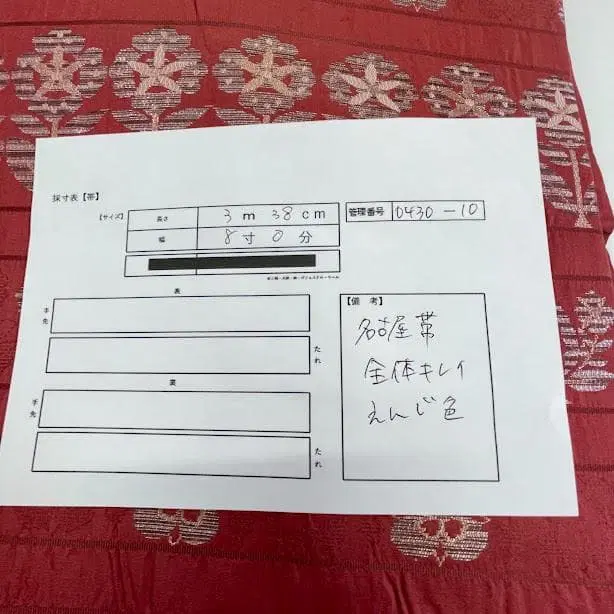 採寸表【帯】
【サイズ】 長さ 3 m 38 cm 管理番号 0430-10
幅 8 寸 0 分
表
手先
たれ
裏
手先
たれ
【備 考】
名古屋帯
全体キレイ
えんじ色